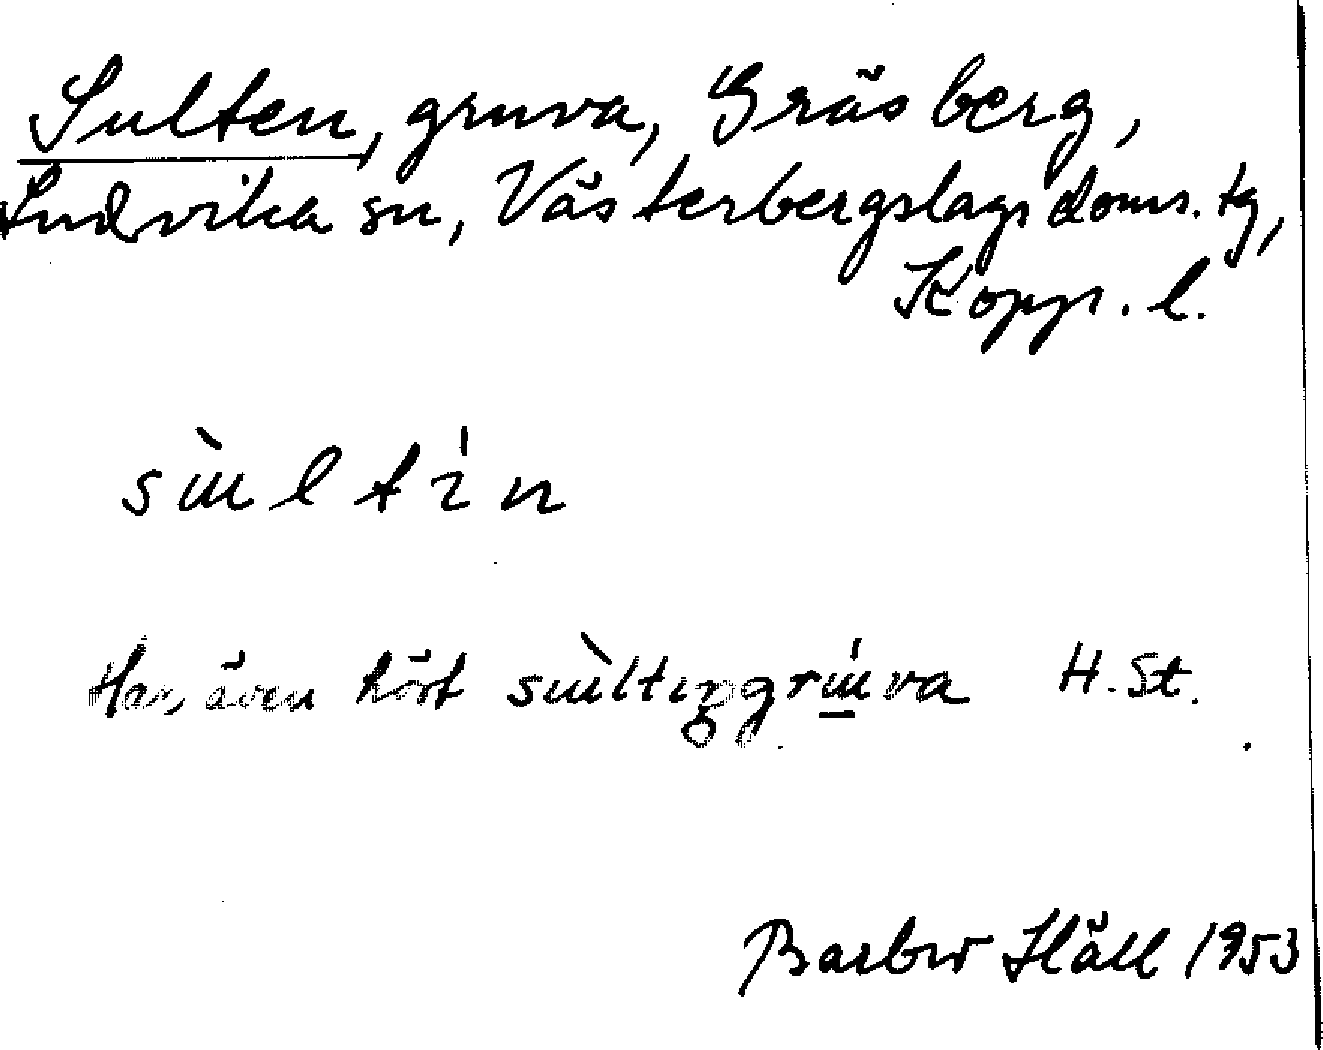 Sulten, gruva, Gräsberg,
Ludvika sn, Västerbergslags doms. tg,
Kopp. l.
sɯ̀ltı̍n
Har även hört sɯ̀ltıŋgrɯ̍va H. St.
Barbro Häll 1953